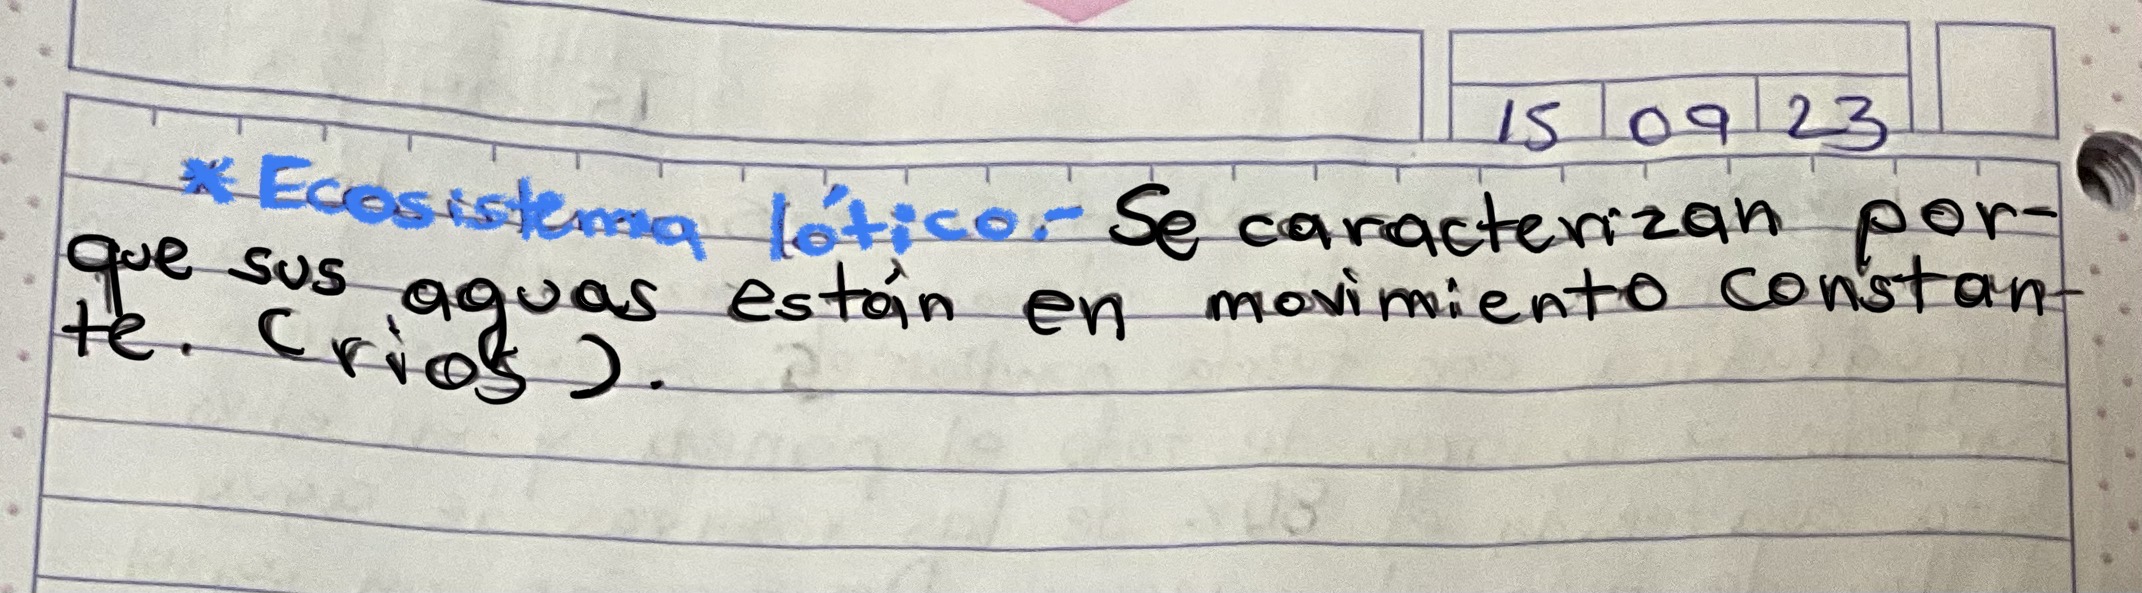 15 09 23
* Ecosistema lótico.- Se caracterizan por-
que sus aguas están en movimiento constan-
te. (rios).